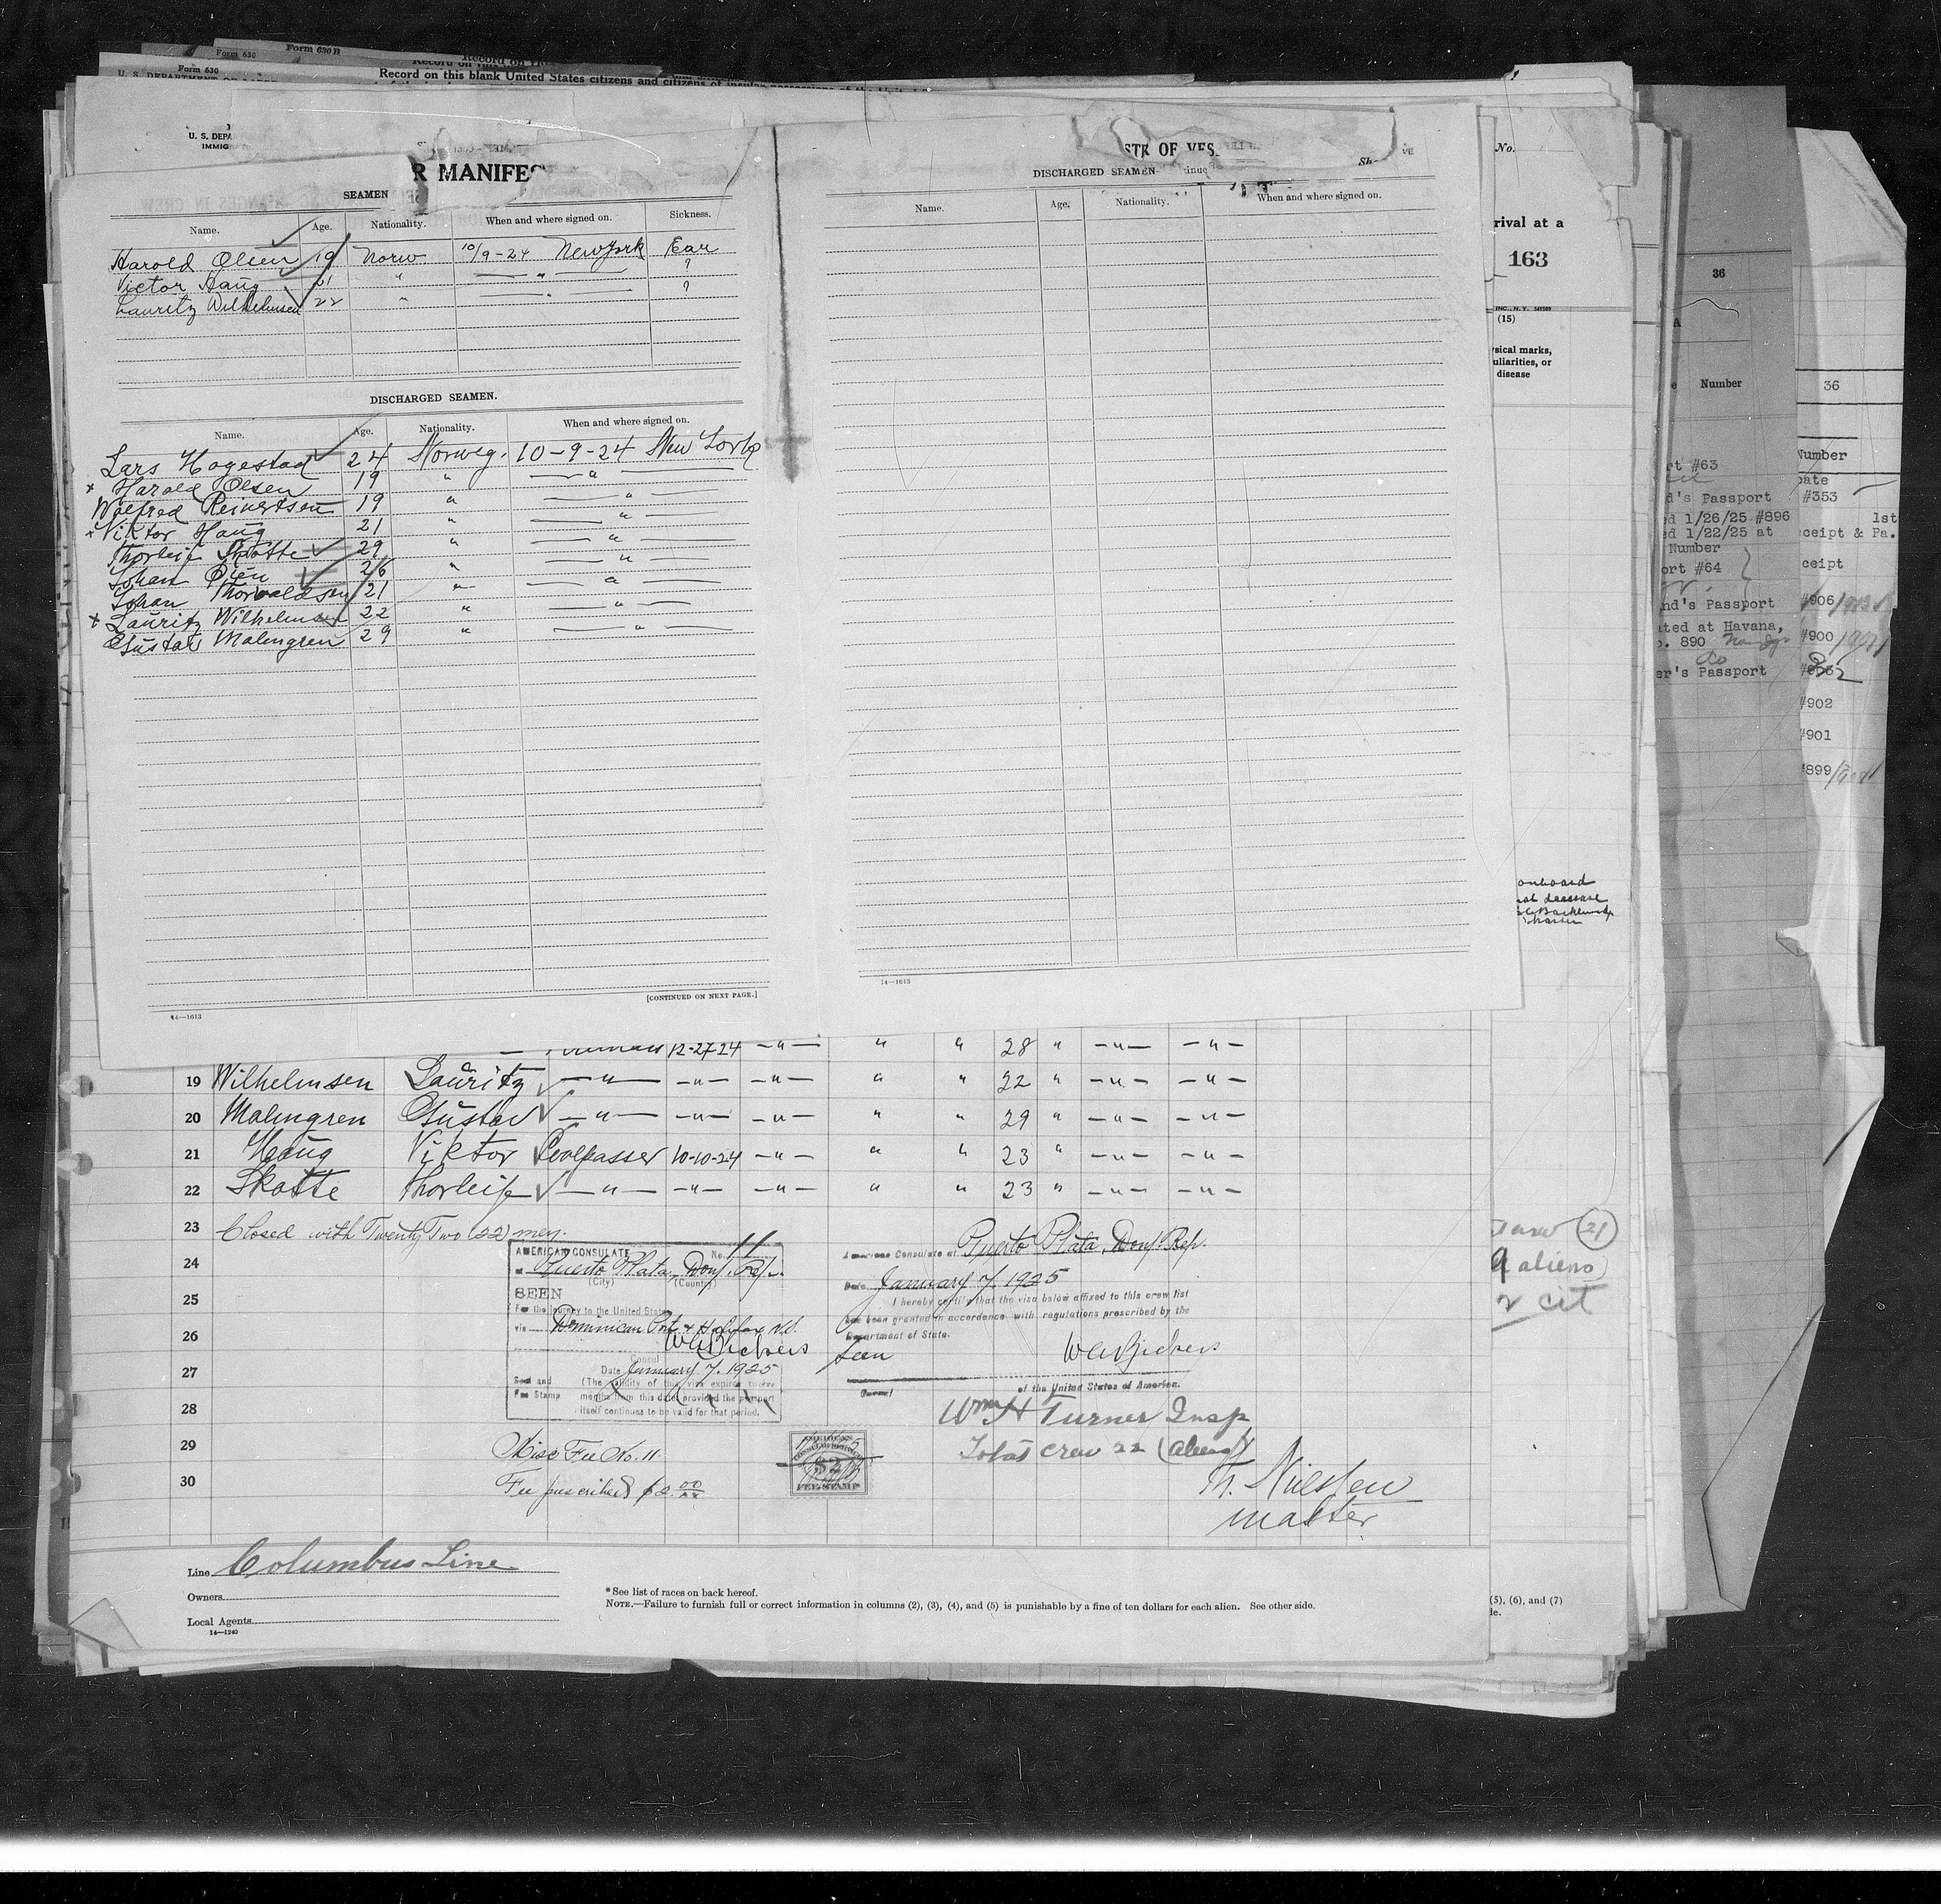 Form 630 B
Form 630
Form 630
Record on this blank United States citizens and citizens of insular possessions of the
U. S. DEPA
IMMIG
R MANIFES
SEAMEN
Name. Age. Nationality. When and where signed on. Sickness.
Harold Olsen 19 Norw 10/9-24 New York Ear
Victor Haug 21 " — " — ?
Lauritz Wilhelmsen 22 " — " — ?
DISCHARGED SEAMEN.
Name. Age. Nationality. When and where signed on.
Lars Hogestad 24 Norweg. 10-9-24 New York
x Harold Olsen 19 " — " —
Wolfred Reinertsen 19 " — " —
x Viktor Haug 21 " — " —
Thorleif Skotte 29 " — " —
Johan Øien 26 " — " —
Johan Thorvaldsen 21 " — " —
x Lauritz Wilhelmsen 22 " — " —
Gustav Malmgren 29 " — " —
[CONTINUED ON NEXT PAGE.]
14—1613
STR OF VES
DISCHARGED SEAMEN— inue
Name. Age. Nationality. When and where signed on.
14—1613
No.
rival at a
163
INC., N. Y.
(15)
sical marks,
uliarities, or
disease
onboard
36
A
Number
rt #63
d's Passport
ed 1/26/25 #896
ed 1/22/25 at
Number
ort #64
nd's Passport
ated at Havana,
o. 890
er's Passport
36
Number
Date
#353
1st
ceipt & Pa.
ceipt
#906
#900
#902
#901
#899
12-27-24 —"— " " 28 " —"— —"—
19 Wilhelmsen Lauritz —"— —"— —"— " " 22 " —"— —"—
20 Malmgren Gustav —"— —"— —"— " " 29 " —"— —"—
21 Haug Viktor Coalpasser 10-10-24 —"— " " 23 " —"— —"—
22 Skotte Thorleif —"— —"— —"— " " 23 " —"— —"—
23 Closed with Twenty Two (22) men.
24
25
26
27
28
29
30
AMERICAN CONSULATE No. 11
at Puerto Plata, Dom. Rep.
(City) (Country)
SEEN
For the journey to the United States
via Dominican Port & Halifax N.S.
Consul
Date January 7, 1925
Seal and (The validity of this visa expires twelve
Fee Stamp months from this date provided the passport
itself continues to be valid for that period.
American Consulate at Puerto Plata, Dom. Rep.
Date January 7, 1925
I hereby certify that the visa below affixed to this crew list
has been granted in accordance with regulations prescribed by the
Department of State.
Seen
Consul of the United States of America.
Wm H Turner Insp
Total crew 22 (aliens)
Th. Nielsen
Master
Misc Fee No. 11.
Fee prescribed $2.00
AMERICAN
$2
FEE STAMP
21
9 aliens
2 cit
Line Columbus Line
Owners
Local Agents
14—1240
*See list of races on back hereof.
NOTE.—Failure to furnish full or correct information in columns (2), (3), (4), and (5) is punishable by a fine of ten dollars for each alien. See other side.
(5), (6), and (7)